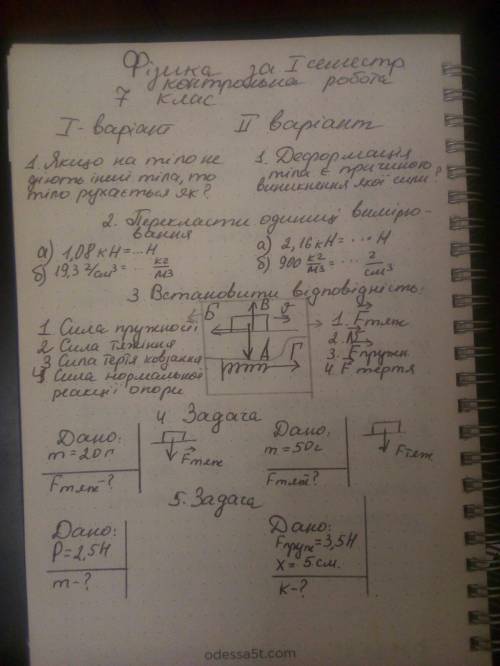 Фізика за I семестр
контрольна робота
7 клас
I-варіант
II варіант
1. Якщо на тіло не
діють інші тіла, то
тіло рухається як?
1. Деформація
тіла є причиною
виникнення якої сили?
2. Перекласти одиниці вимірю-
вання
а) 1,08 кН = ... Н
б) 19,3 г/см³ = ... кг/м³
а) 2,16 кН = ... Н
б) 900 кг/м³ = ... г/см³
3 Встановити відповідність:
1 Сила пружності
2 Сила тяжіння
3 Сила тертя ковзання
4 Сила нормальної
реакції опори
Б В v
А Г
1. Fтяж
2. N
3. Fпружн
4 Fтертя
4 Задача
Дано:
m = 20 г
Fтяж - ?
Fтяж
Дано:
m = 50 г
Fтяж - ?
Fтяж
5. Задача
Дано:
P = 2,5 Н
m - ?
Дано:
Fпруж = 3,5 Н
x = 5 см.
k - ?
odessa5t.com